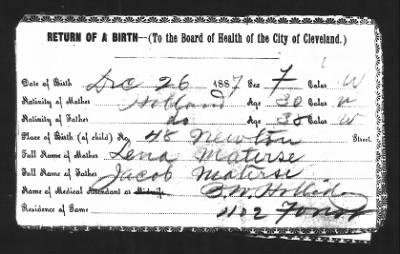 RETURN OF A BIRTH—(To the Board of Health of the City of Cleveland.)
Date of Birth Dec 26 1887 Sex F Color W
Nativity of Mother Holland Age 30 Color W
Nativity of Father do Age 38 Color W
Place of Birth (of child) No. 48 Newton Street.
Full Name of Mother Lena Materse
Full Name of Father Jacob Materse
Name of Medical Attendant or Midwife B.W. Holliday
Residence of Same 1102